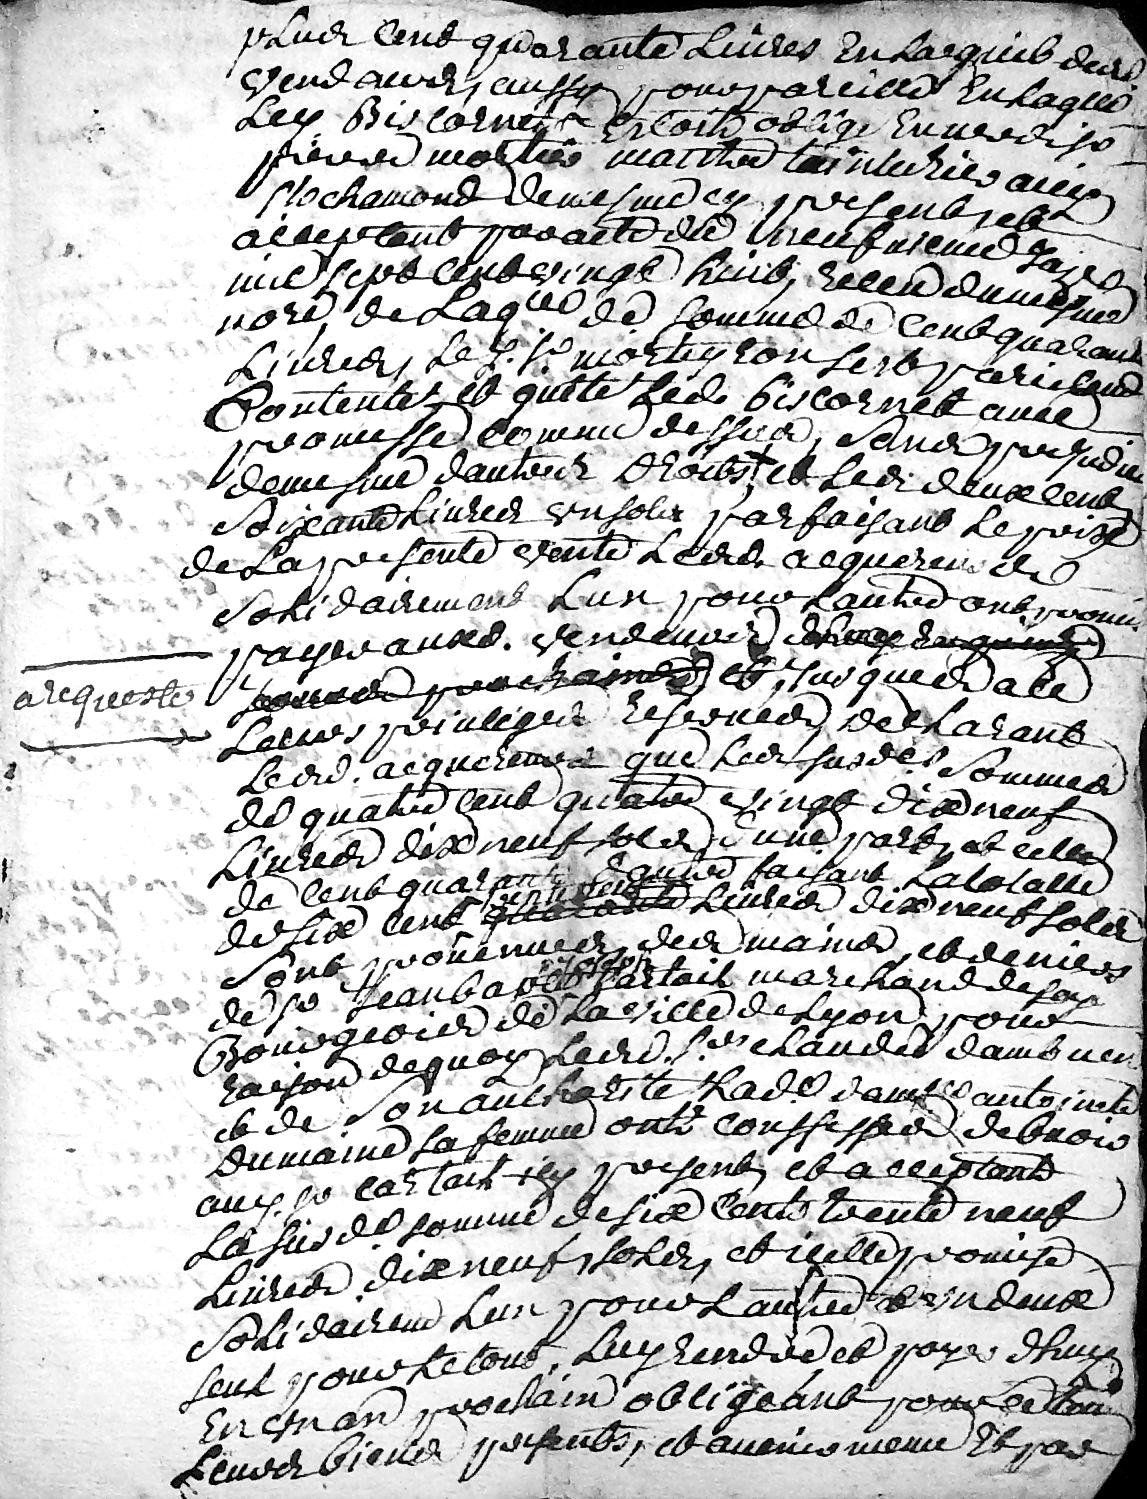 plus cent quarante Livres En Laquelle lesd
vendeurs, aussy pour pareille En Laquelle
Led Biscornet Estoit obligé Envers sr
pierre mortier maittre tainturier audit
St chamond de mesme cy present et
acceptant par acte du neufvieme
mil sept cent vingt huit, receu du mesme
nore, de Laquelle de somme de cent quarante
Livres, Le d. sr morteyron sest pareillement
Contenté, et quitte Led. biscornet avec
promesse comme dessus, sans prejudice
de mesme dautres Droits, et Les deux cent
Soixante Livres un sols parfaisant Le prix
de La presente vente Lesd. acquereurs
Solidairement Lun pour Lautre ont promis
payer auxd. vendeurs
a requeste
et Jusques a ce
Leurs privileges reservés, declarant
Lesd. acquereurs que Les susdes Sommes
de quatre cent quatre vingt dix neuf
Livres dix neuf sols d'une part, et celle
de cent quarante d'autre faisant La totalle
de six cent trente neuf Livres dix neuf sols
Sont provenues, des mains, et deniers
de sr Jean baptiste Cartail marchand de soye
Bourgeois de La ville de Lyon, pour
raison de quoy Lesd. srs chaudes
et de Son authorité Lade damlle antoinette
Dumaine sa femme ont confessé debvoir
audt sr cartail icy present, et acceptant
La susde somme de six cents trente neuf
Livres dix neuf sols, et icelle promise
Solidairemt Lun pour Lautre un deux
seul pour Le tout, Luy rendre et payer dhuy
En un an prochain obligeant pour ce tous
Leurs biens presents, et avenir mème Et par